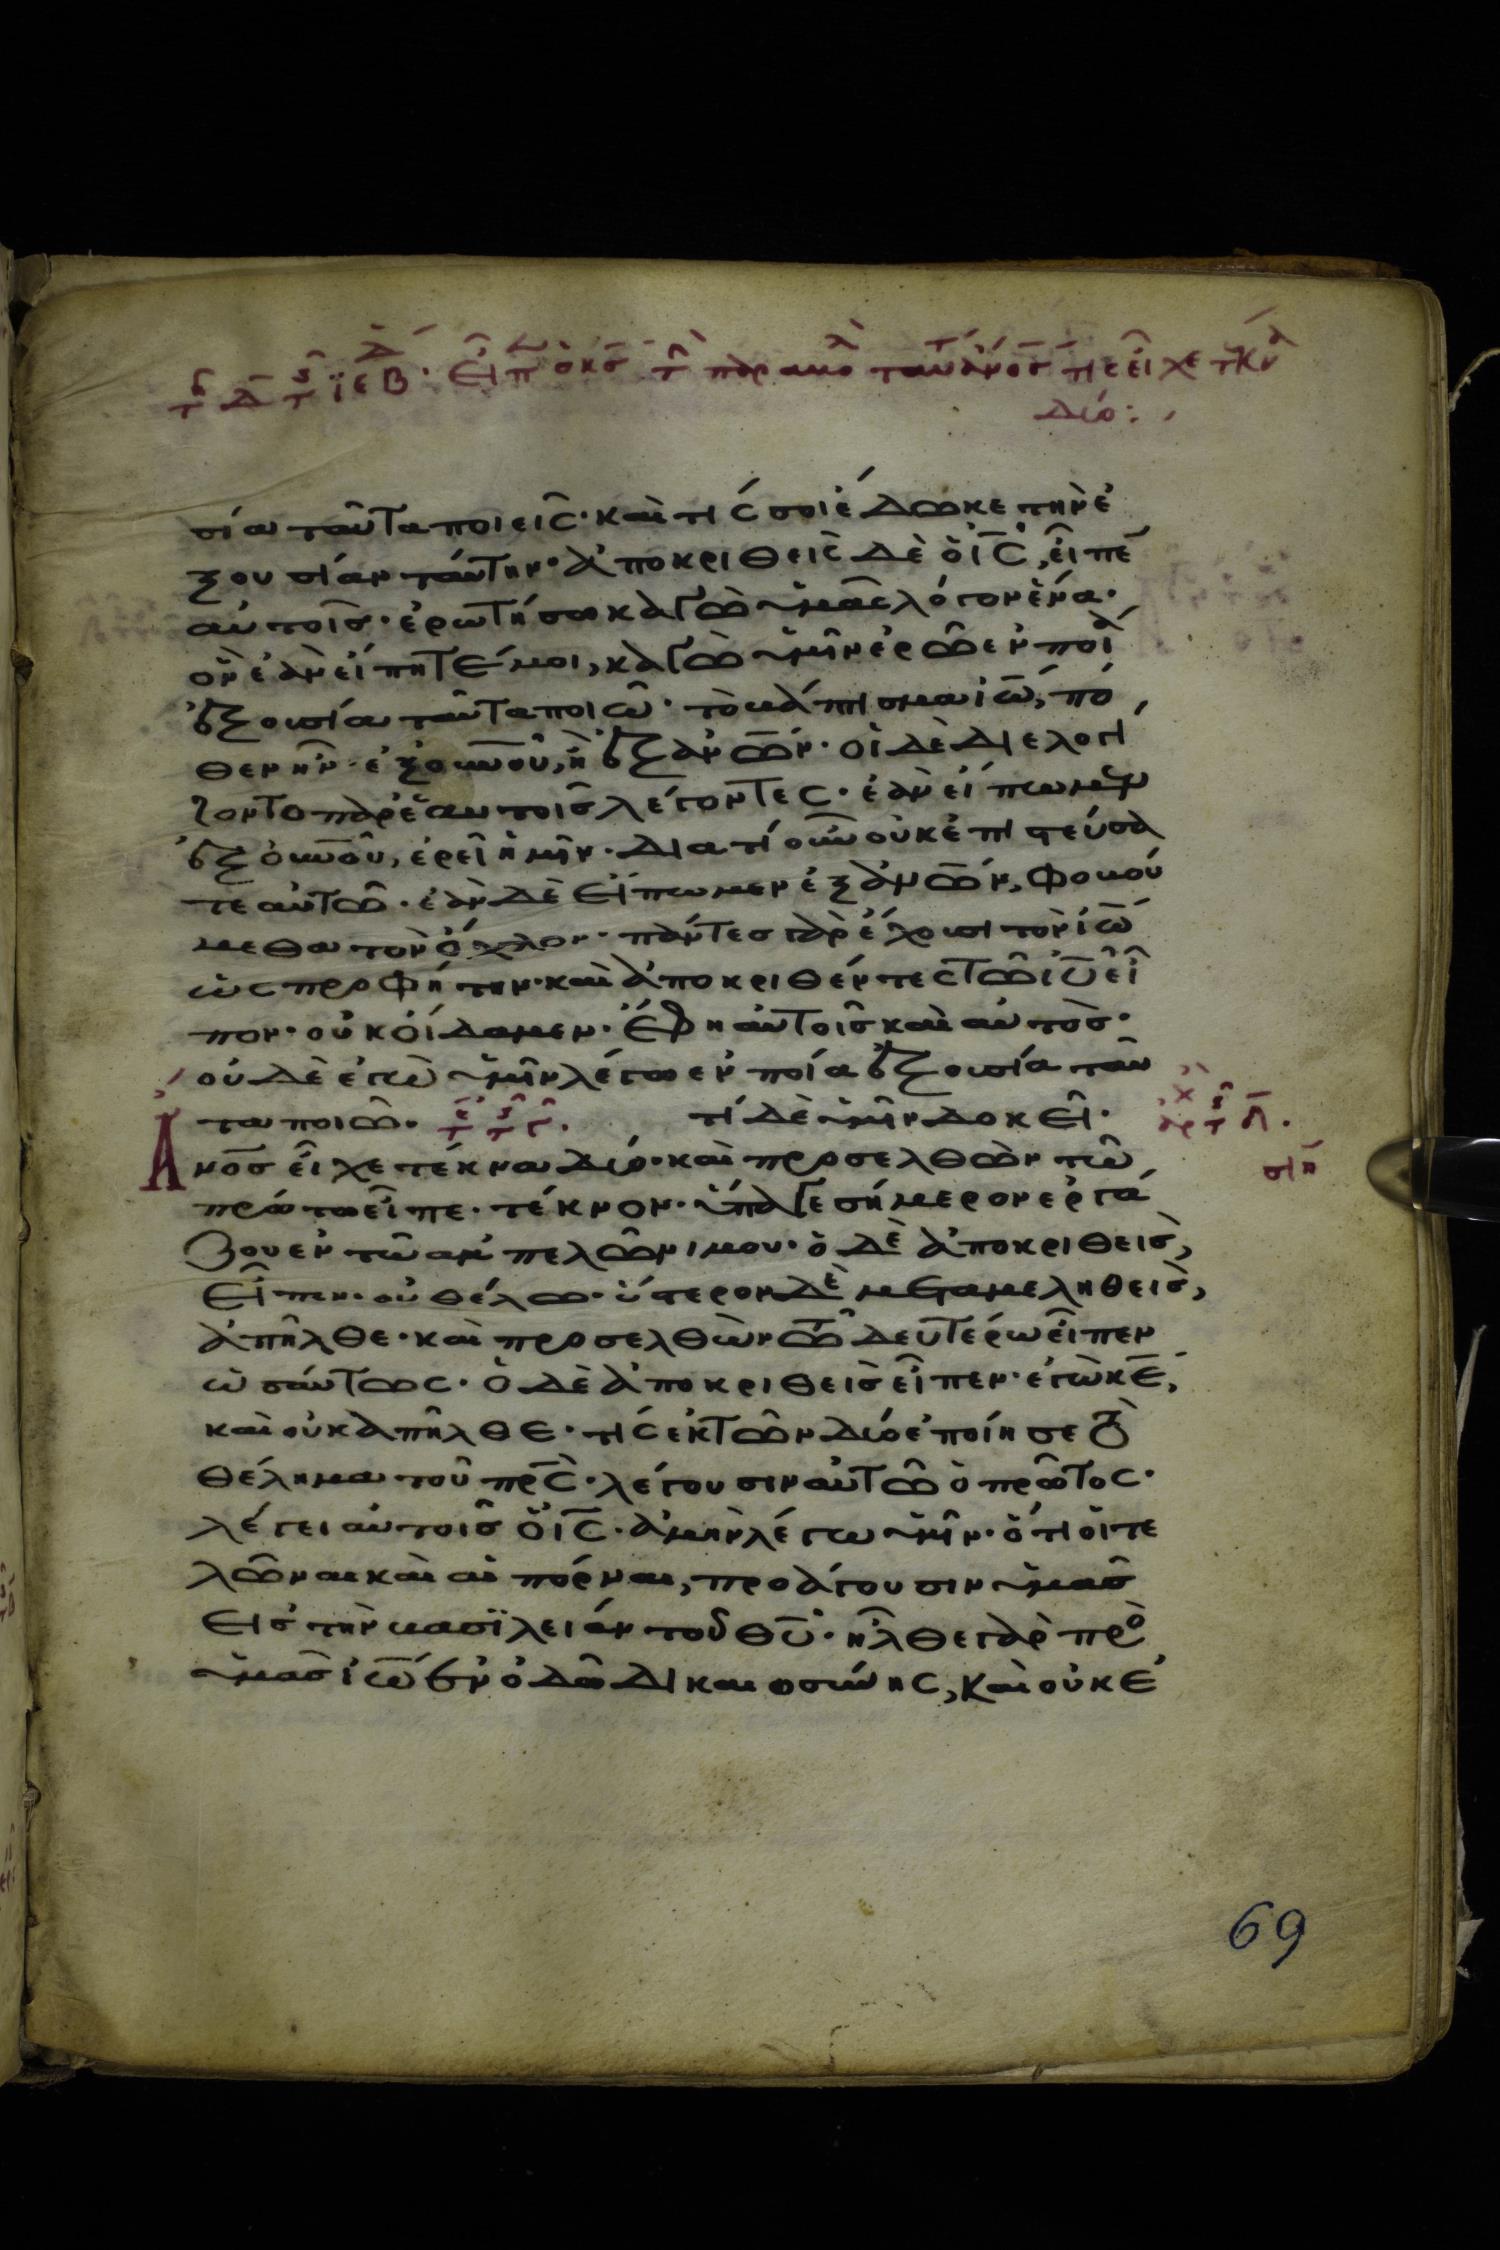 τῆ Δ̄ τῆς ιε Β· Εἶπ ὁ κς̄ τ̀ παραβολ ταύτ ἀν̄ος τις εἶχε τέκνα
δύο:
σία ταῦτα ποιεῖς· καὶ τίς σοι ἔδωκε τὴν ἐ
ξουσίαν ταύτην· ἀποκριθεὶς δὲ ὁ ις̄, εἶπεν
αὐτοῖς· ἐρωτήσω κἀγὼ ὑμᾶς λόγον ἕνα·
ὃν ἐὰν εἴπητέ μοι, κἀγὼ ὑμῖν ἐρῶ ἐν ποία
ἐξουσία ταῦτα ποιῶ· τὸ βάπτισμα ιω̄, πό
θεν ἦν· ἐξ οὐνοῦ, ἢ ἐξ ἀνων̄· οἱ δὲ διελογί
ζοντο παρ' ἑαυτοῖς λέγοντες· ἐὰν εἴπωμεν
ἐξ οὐνοῦ, ἐρεῖ ἡμῖν· διατί οὖν οὐκ ἐπιστεύσα
τε αὐτῶ· ἐὰν δὲ εἴπωμεν ἐξ ἀνων̄, φοβού
μεθα τὸν ὄχλον· πάντες γὰρ ἔχουσι τὸν ιω̄
ὡς προφήτην· καὶ ἀποκριθέντες τῶ ιῡ εἶ
πον· οὐκ οἴδαμεν· ἔφη αὐτοῖς καὶ αὐτὸς·
οὐδὲ ἐγὼ ὑμῖν λέγω ἐν ποία ἐξουσία ταῦ
τα ποιῶ· τε τῆς Γ· τί δὲ ὑμῖν δοκεῖ· ἀρχ τῆς Δ·
Ἄνος̄ εἶχε τέκνα δύο· καὶ προσελθὼν τῶ
πρώτω εἶπε· τέκνον· ὕπαγε σήμερον ἐργά
ζου ἐν τῶ ἀμπελῶνι μου· ὁ δὲ ἀποκριθεὶς,
εἶπεν· οὐ θέλω· ὕστερον δὲ μεταμεληθεὶς,
ἀπῆλθε· καὶ προσελθὼν τῶ δευτέρω εἶπεν
ὡσαύτως· ὁ δὲ ἀποκριθεὶς εἶπεν· ἐγὼ κε̄,
καὶ οὐκ ἀπῆλθε· τίς ἐκ τῶν δύο ἐποίησε τὸ
θέλημα τοῦ πρς̄· λέγουσιν αὐτῶ ὁ πρῶτος·
λέγει αὐτοῖς ὁ ις̄· ἀμὴν λέγω ὑμῖν· ὅτι οἱ τε
λῶναι καὶ αἱ πόρναι, προάγουσιν ὑμᾶς
εἰς τὴν βασιλείαν τοῦ θῡ· ἦλθε γὰρ πρὸς
ὑμᾶς ιω̄ ἐν ὁδῶ δικαιοσύνης, καὶ οὐκ ἐ
69